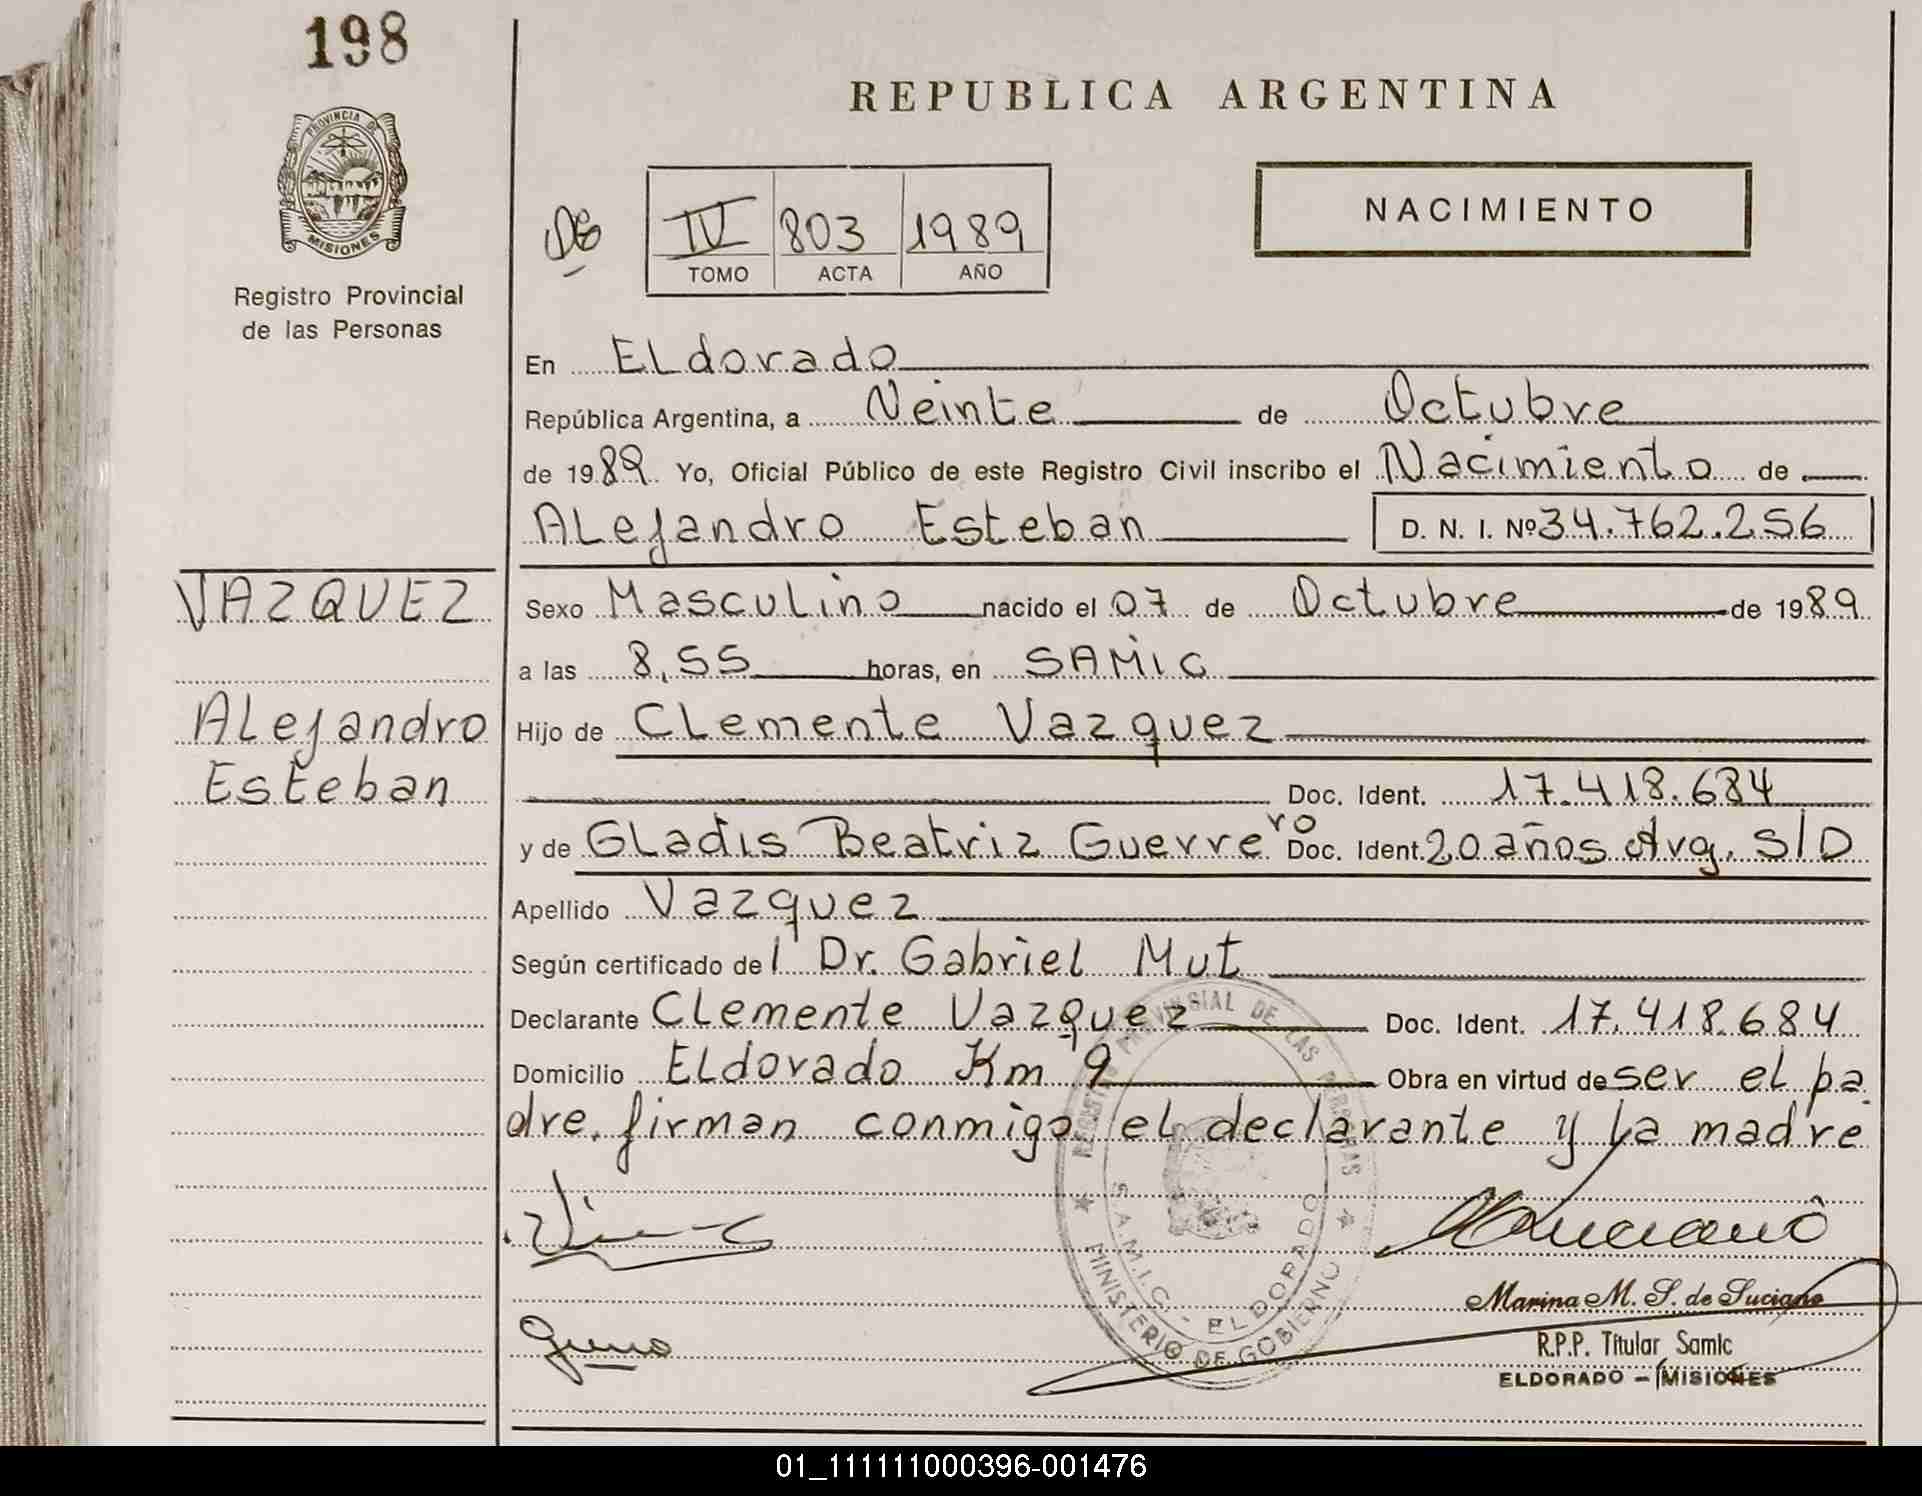 198
PROVINCIA DE
MISIONES
Registro Provincial
de las Personas
REPUBLICA ARGENTINA
IV 803 1989
TOMO ACTA AÑO
NACIMIENTO
En ELdorado
República Argentina, a Veinte de Octubre
de 1989 Yo, Oficial Público de este Registro Civil inscribo el Nacimiento de
ALejandro Esteban D. N. I. Nº 34.762.256
VAZQUEZ
ALejandro
Esteban
Sexo MascuLino nacido el 07 de Octubre de 1989
a las 8,55 horas, en SAMIC
Hijo de CLemente Vazquez
Doc. Ident. 17.418.684
y de GLadis Beatriz Guerrero Doc. Ident. 20 años Arg. S/D
Apellido Vazquez
Según certificado del Dr. Gabriel Mut
Declarante CLemente Vazquez Doc. Ident. 17.418.684
Domicilio ELdorado Km 9 Obra en virtud de ser el pa
dre. firman conmigo el declarante y La madre
REGISTRO PROVINSIAL DE LAS PERSONAS
S.A.M.I.C. - ELDORADO
MINISTERIO DE GOBIERNO
Marina M. S. de Luciano
R.P.P. Titular Samic
ELDORADO - MISIONES
01_111111000396-001476